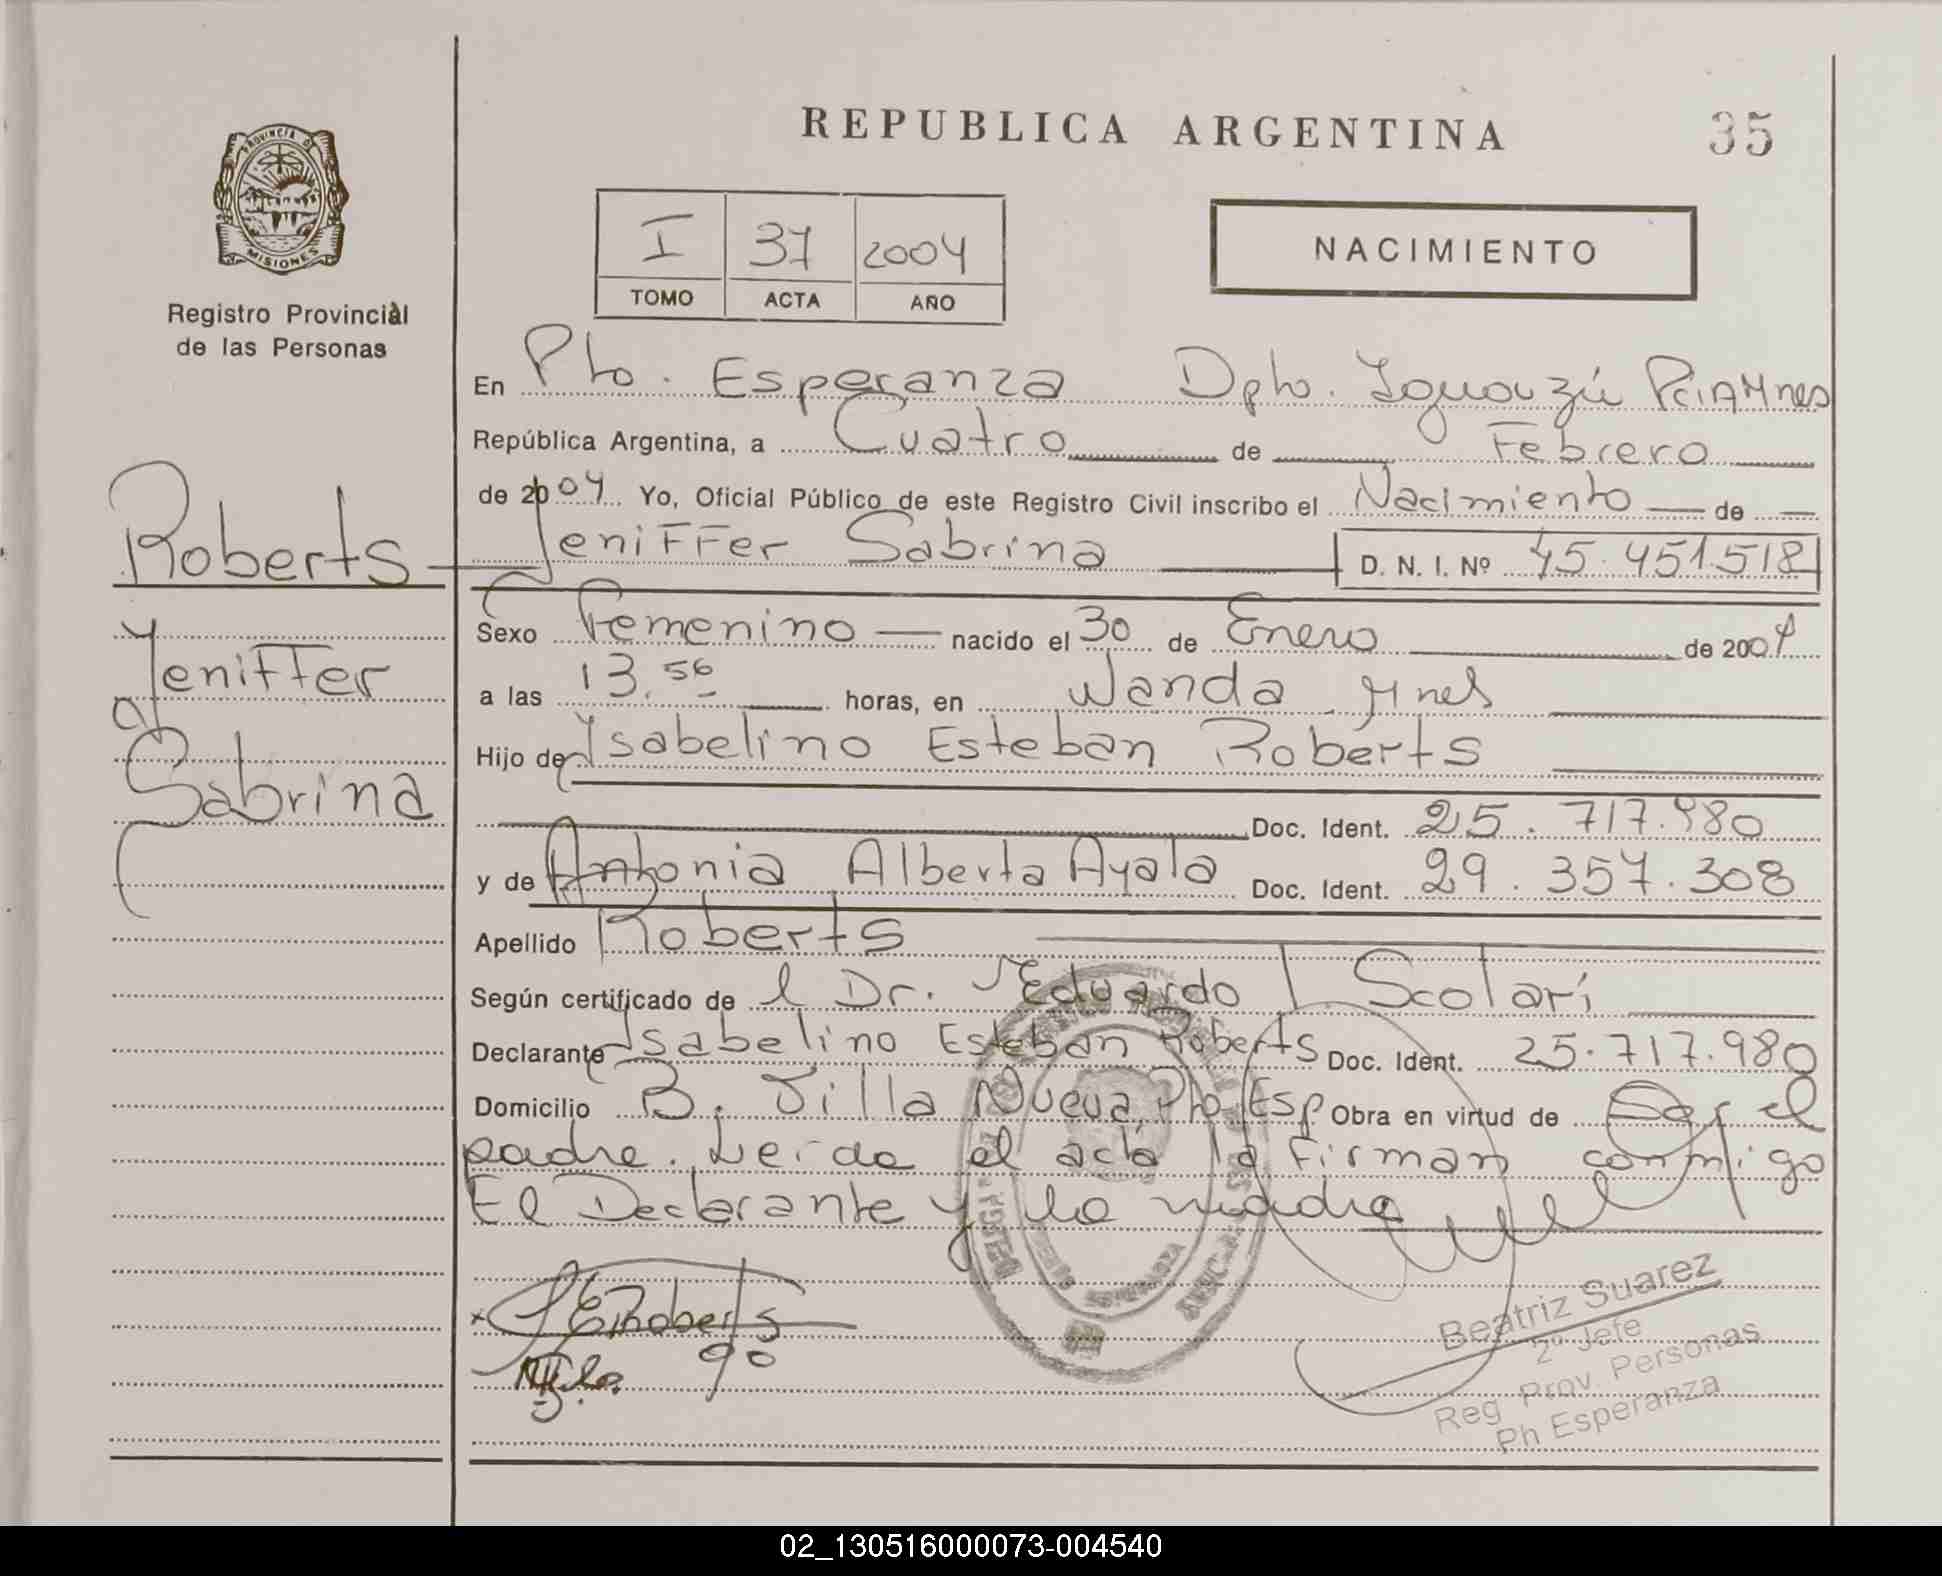 REPUBLICA ARGENTINA
35
PROVINCIA DE MISIONES
Registro Provincial
de las Personas
I 37 2004
TOMO ACTA AÑO
NACIMIENTO
En Pto. Esperanza Dpto. Iguazú Pcia Mnes
República Argentina, a Cuatro de Febrero
de 2004 Yo, Oficial Público de este Registro Civil inscribo el Nacimiento de
Jeniffer Sabrina D. N. I. Nº 45.451.518
Roberts
Jeniffer
Sabrina
Sexo Femenino nacido el 30 de Enero de 2004
a las 13.56 horas, en Wanda Mnes
Hijo de Isabelino Esteban Roberts
Doc. Ident. 25.717.980
y de Antonia Alberta Ayala Doc. Ident. 29.357.308
Apellido Roberts
Según certificado de l Dr. Eduardo L. Scolari
Declarante Isabelino Esteban Roberts Doc. Ident. 25.717.980
Domicilio B. Villa Nueva, Pto Esp. Obra en virtud de Ser el
padre. Leída el acta la firman conmigo
El Declarante y la madre
Roberts
Beatriz Suarez
2º Jefe
Reg Prov. Personas
Pto Esperanza
02_130516000073-004540